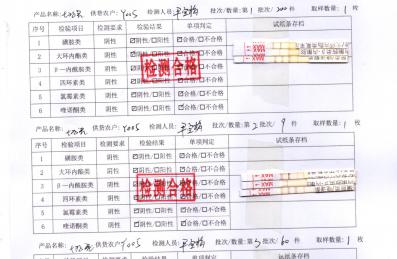 产品名称: 供货农户: Y005 检测人员: 批次/数量:第 1 批次/ 200 件 取样数量: 1 枚
序号 检验项目 检测要求 检验结果 单项判定 试纸条存档
1 磺胺类 阴性 ☑阴性/□阳性 ☑合格/□不合格
2 大环内酯类 阴性 ☑阴性/□阳性 ☑合格/□不合格
3 β—内酰胺类 阴性 ☑阴性/□阳性 ☑合格/□不合格
4 四环素类 阴性 ☑阴性/□阳性 ☑合格/□不合格
5 氯霉素类 阴性 ☑阴性/□阳性 ☑合格/□不合格
6 喹诺酮类 阴性 ☑阴性/□阳性 ☑合格/□不合格
检测合格
MAX
产品名称: 供货农户: Y005 检测人员: 批次/数量:第 2 批次/ 9 件 取样数量: 1 枚
序号 检验项目 检测要求 检验结果 单项判定 试纸条存档
1 磺胺类 阴性 ☑阴性/□阳性 ☑合格/□不合格
2 大环内酯类 阴性 ☑阴性/□阳性 ☑合格/□不合格
3 β—内酰胺类 阴性 ☑阴性/□阳性 ☑合格/□不合格
4 四环素类 阴性 ☑阴性/□阳性 ☑合格/□不合格
5 氯霉素类 阴性 ☑阴性/□阳性 ☑合格/□不合格
6 喹诺酮类 阴性 ☑阴性/□阳性 ☑合格/□不合格
检测合格
MAX
产品名称: 供货农户: Y005 检测人员: 批次/数量:第 3 批次/ 60 件 取样数量: 1 枚
序号 检验项目 检测要求 检验结果 单项判定 试纸条存档